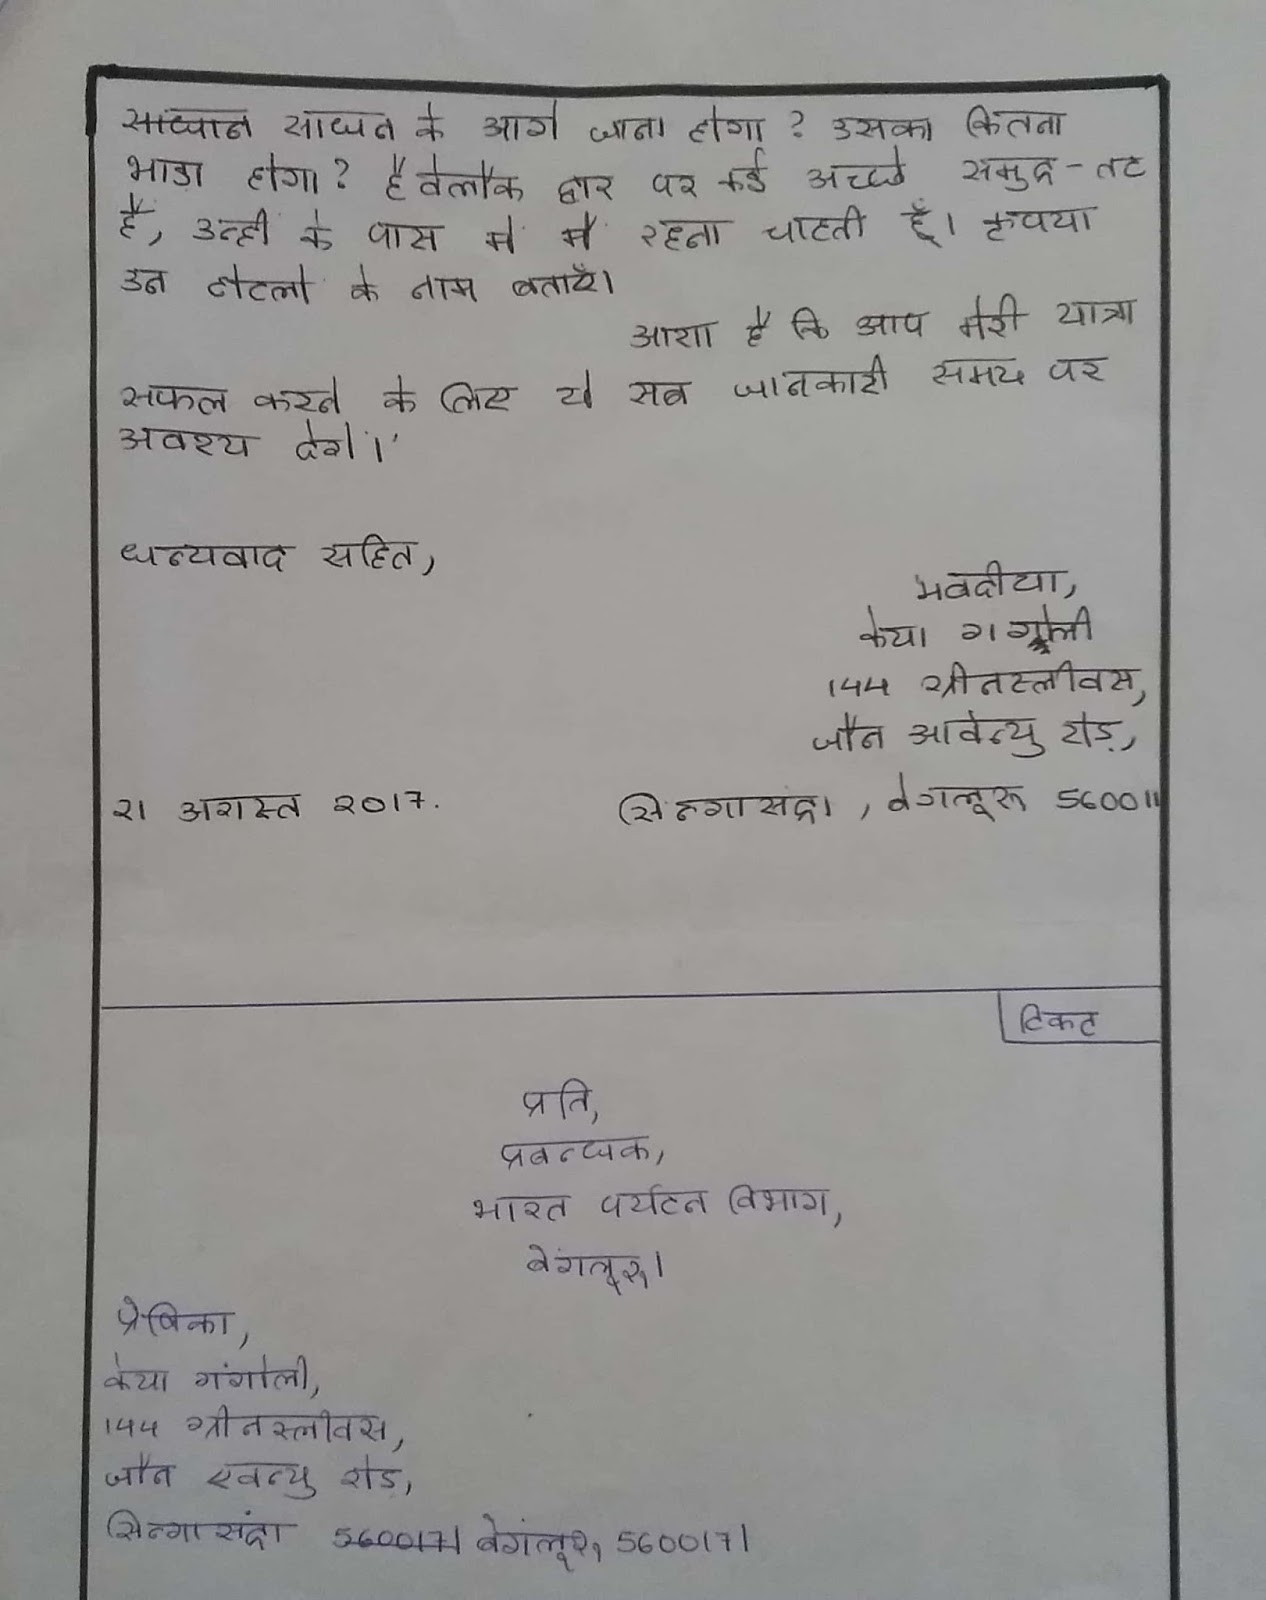 साधान साधन के आगे जाना होगा? उसका कितना
भाडा होगा? हैवेलौक द्वार पर कई अच्छे समुद्र-तट
हैं, उन्ही के पास में मैं रहना चाहती हूँ। कृपया
उन होटलो के नाम बताएँ।
आशा है कि आप मेरी यात्रा
सफल करने के लिए ये सब जानकारी समय पर
अवश्य देगें।
धन्यवाद सहित,
भवदीया,
केया गंगोली
144 ग्रीनस्लीवस,
जौन आवेन्यु रोड़,
21 अगस्त 2017.
सिन्गासंद्रा, बेंगलूरू 560011
टिकट
प्रति,
प्रबन्धक,
भारत पर्यटन विभाग,
बेंगलूरू।
प्रेषिका,
केया गंगोली,
144 ग्रीनस्लीवस,
जौन एवन्यु रोड़,
सिन्गासंद्रा 560017। बेंगलूरू, 560017।